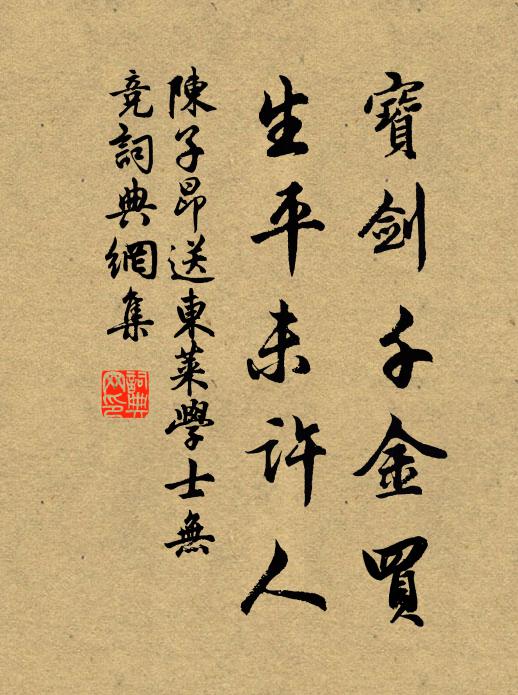 寶劍千金買
生平未許人
陳子昂送東萊學士無
競詞典網集
詞典
网印